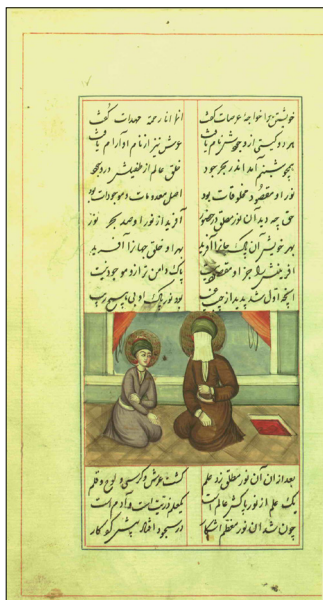 خویشتن را خواجه عرصات گفت انما انا رحمة مهدات گفت
هر دو گیتی از وجودش نام یافت عرش نیز از نام او آرام یافت
همچو شبنم آمدند از بحر جود خلق عالم از طفیلش در وجود
نور او مقصود مخلوقات بود اصل معدومات و موجودات بود
حق چه دید آن نور مطلق در حضور آفرید از نور او صد بحر نور
بهر خویش آن پاک جانرا آفرید بهر او خلق جهانرا آفرید
آفرینش را جز او مقصود نیست پاک دامن تر ازو موجود نیست
آنچه اول شد پدید از جیب بود نور پاک او بی هیچ ریب
بعد از ان آن نور مطلق زد علم گشت عرش و کرسی و لوح و قلم
یک علم از نور پاکش عالم است یک علم ذریت است و آدم است
چون شد ان نور معظم آشکار در سجود افتاد پیش کردکار